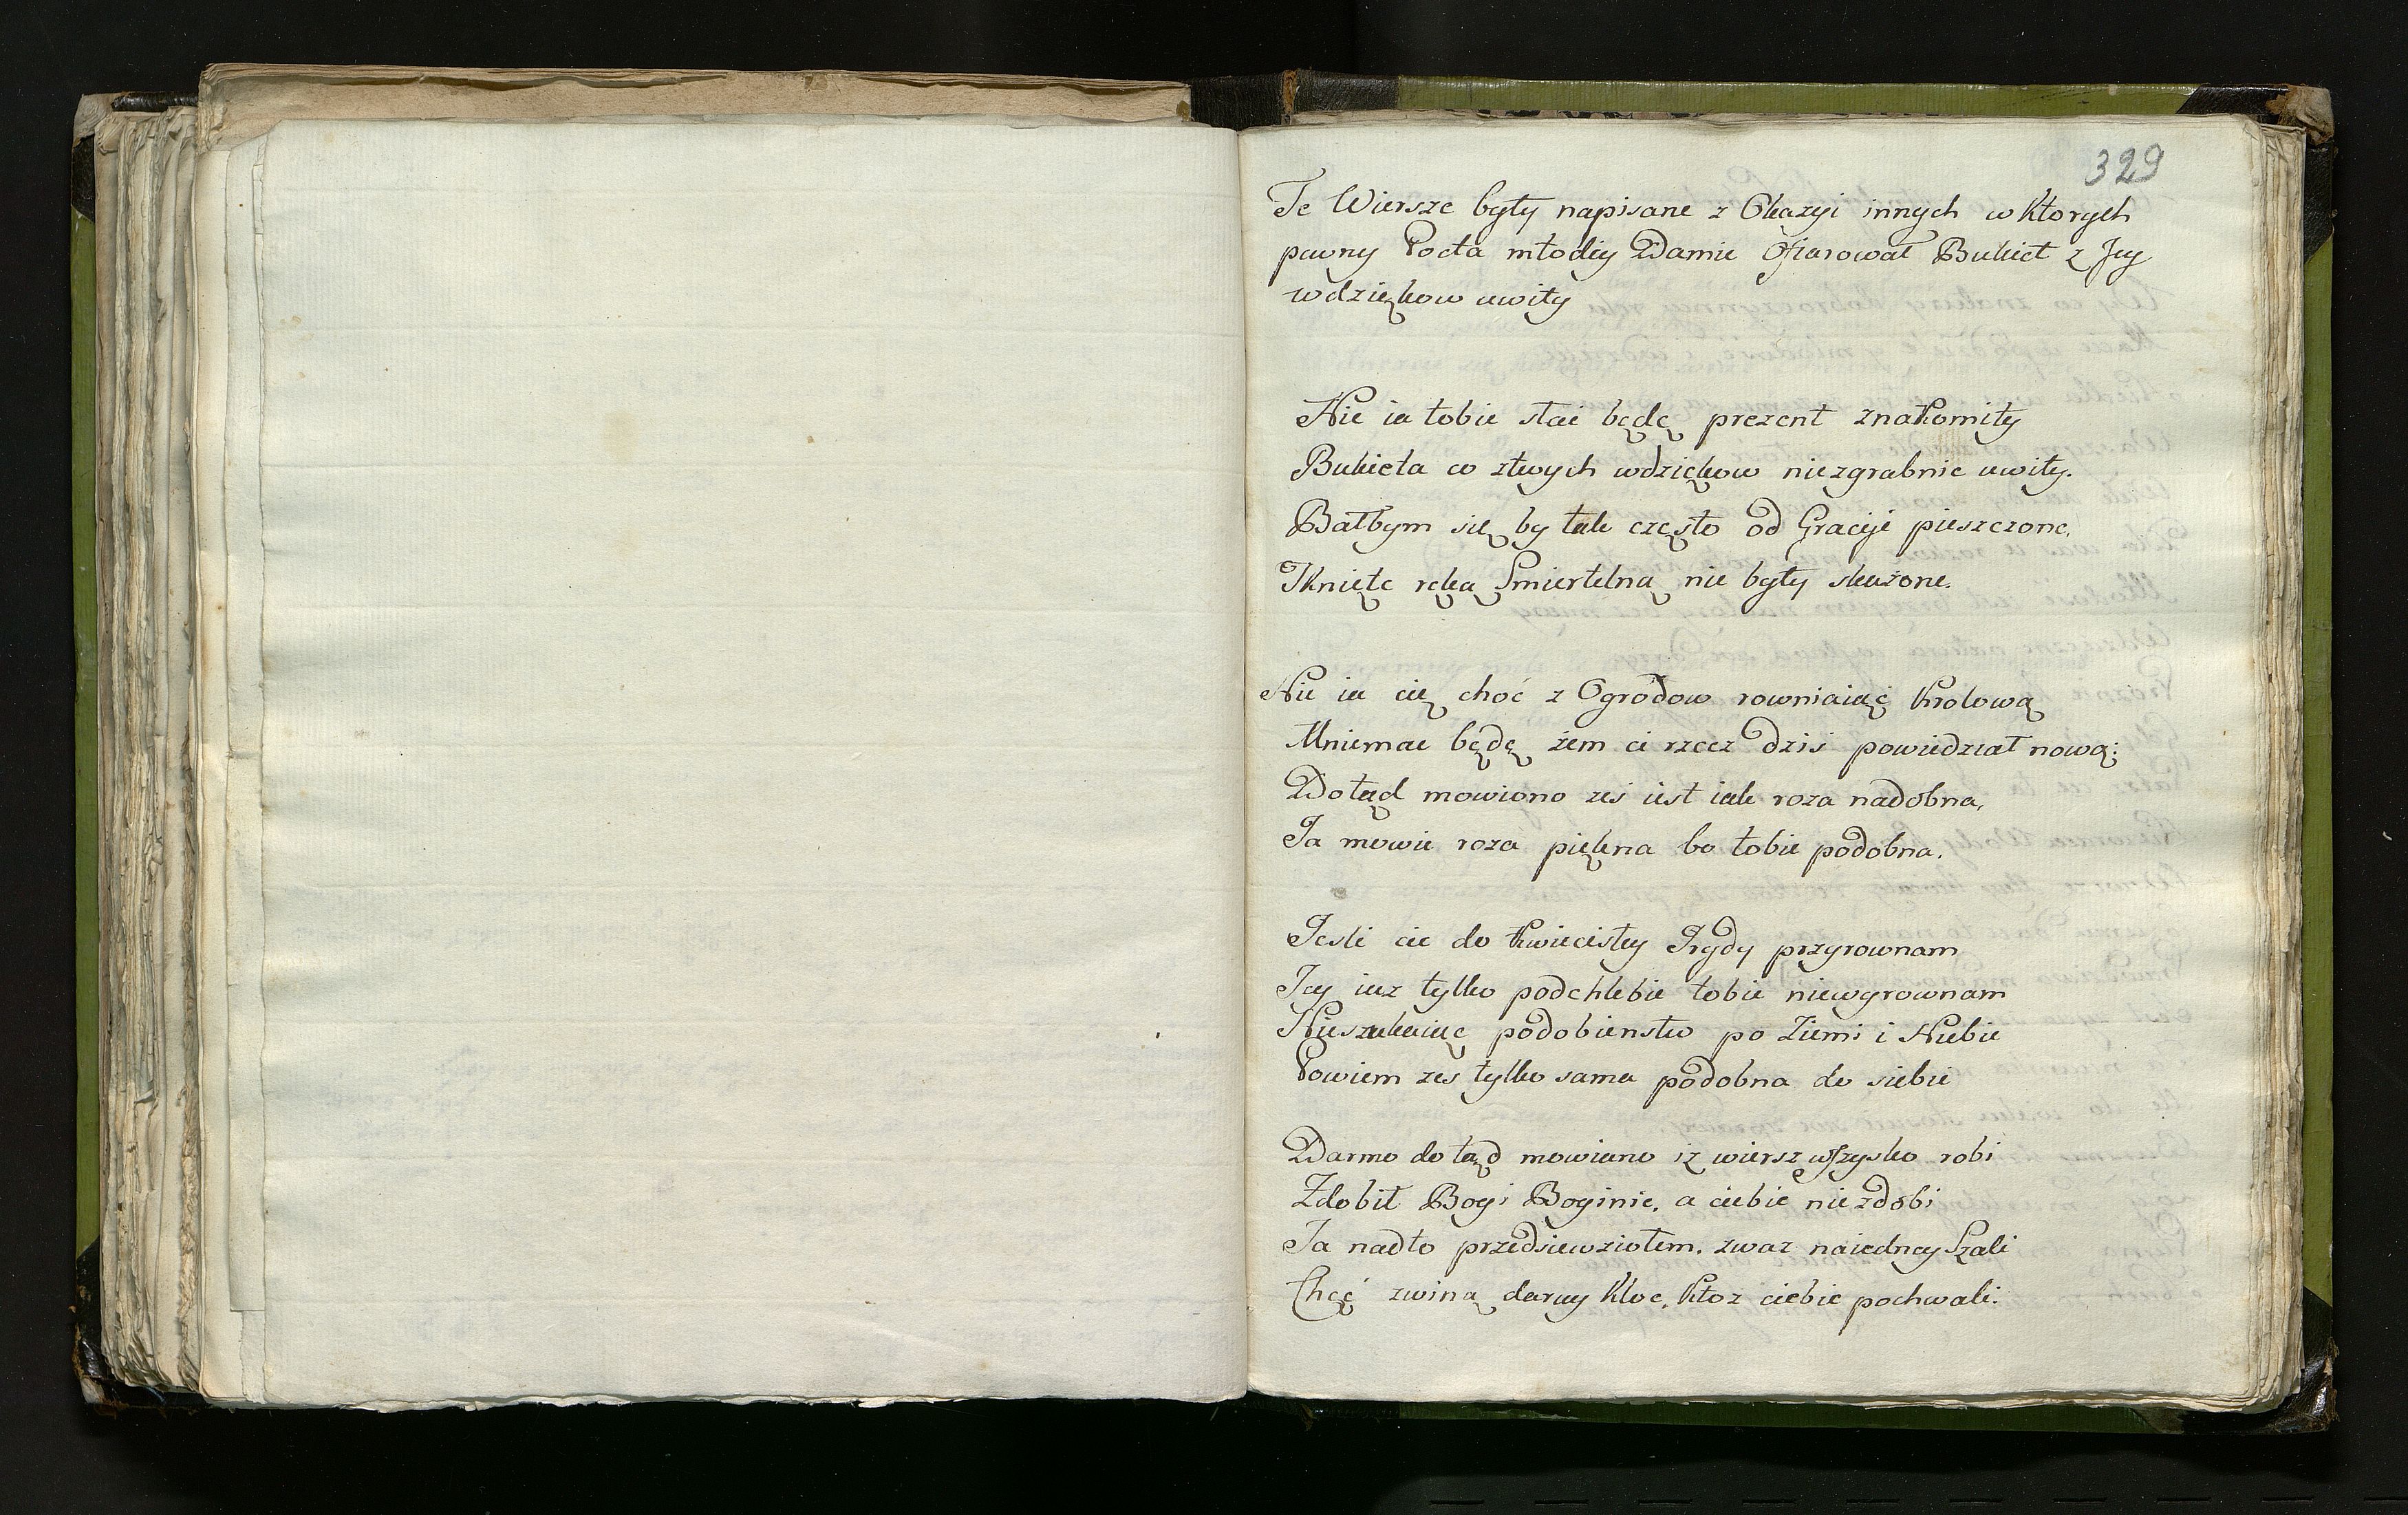 329
Te Wiersze były napisane z Okazyi innych w Ktorych
pewny Poeta młodey Damie Ofiarował Bukiet z Jey
wdzięków uwity
Nie ia tobie słać będę prezent znakomity
Bukieta co ztwych wdzięków niezgrabnie uwity.
Bałbym się by tak często od Gracyi pieszczone,
Tknięte ręką Smiertelną nie były skażone.
Nie ia cię choć z Ogrodow rowniaiąć Krolową
Mniemac będę żem ci rzecz dziś powiedział nową;
Dotąd mowiono ześ iest iak roza nadobna,
Ja mowie roza piękna bo tobie podobna.
Jesli cie do Kwiecistey Irydy przyrownam
Jey iuz tylko podchlebie tobie niewyrownam
Nieszukaiąc podobienstw po Ziemi i Niebie
Powiem zes tylko sama podobna do siebie
Darmo dotąd mowiano iz wiersz wszysko robi
Zdobił Bogi Boginie, a ciebie nie zdobi
Ja nadto przedsiewziołem. zwaz naiedney Szali
Chęć zwiną daruy Kloe, Ktoz ciebie pochwali.